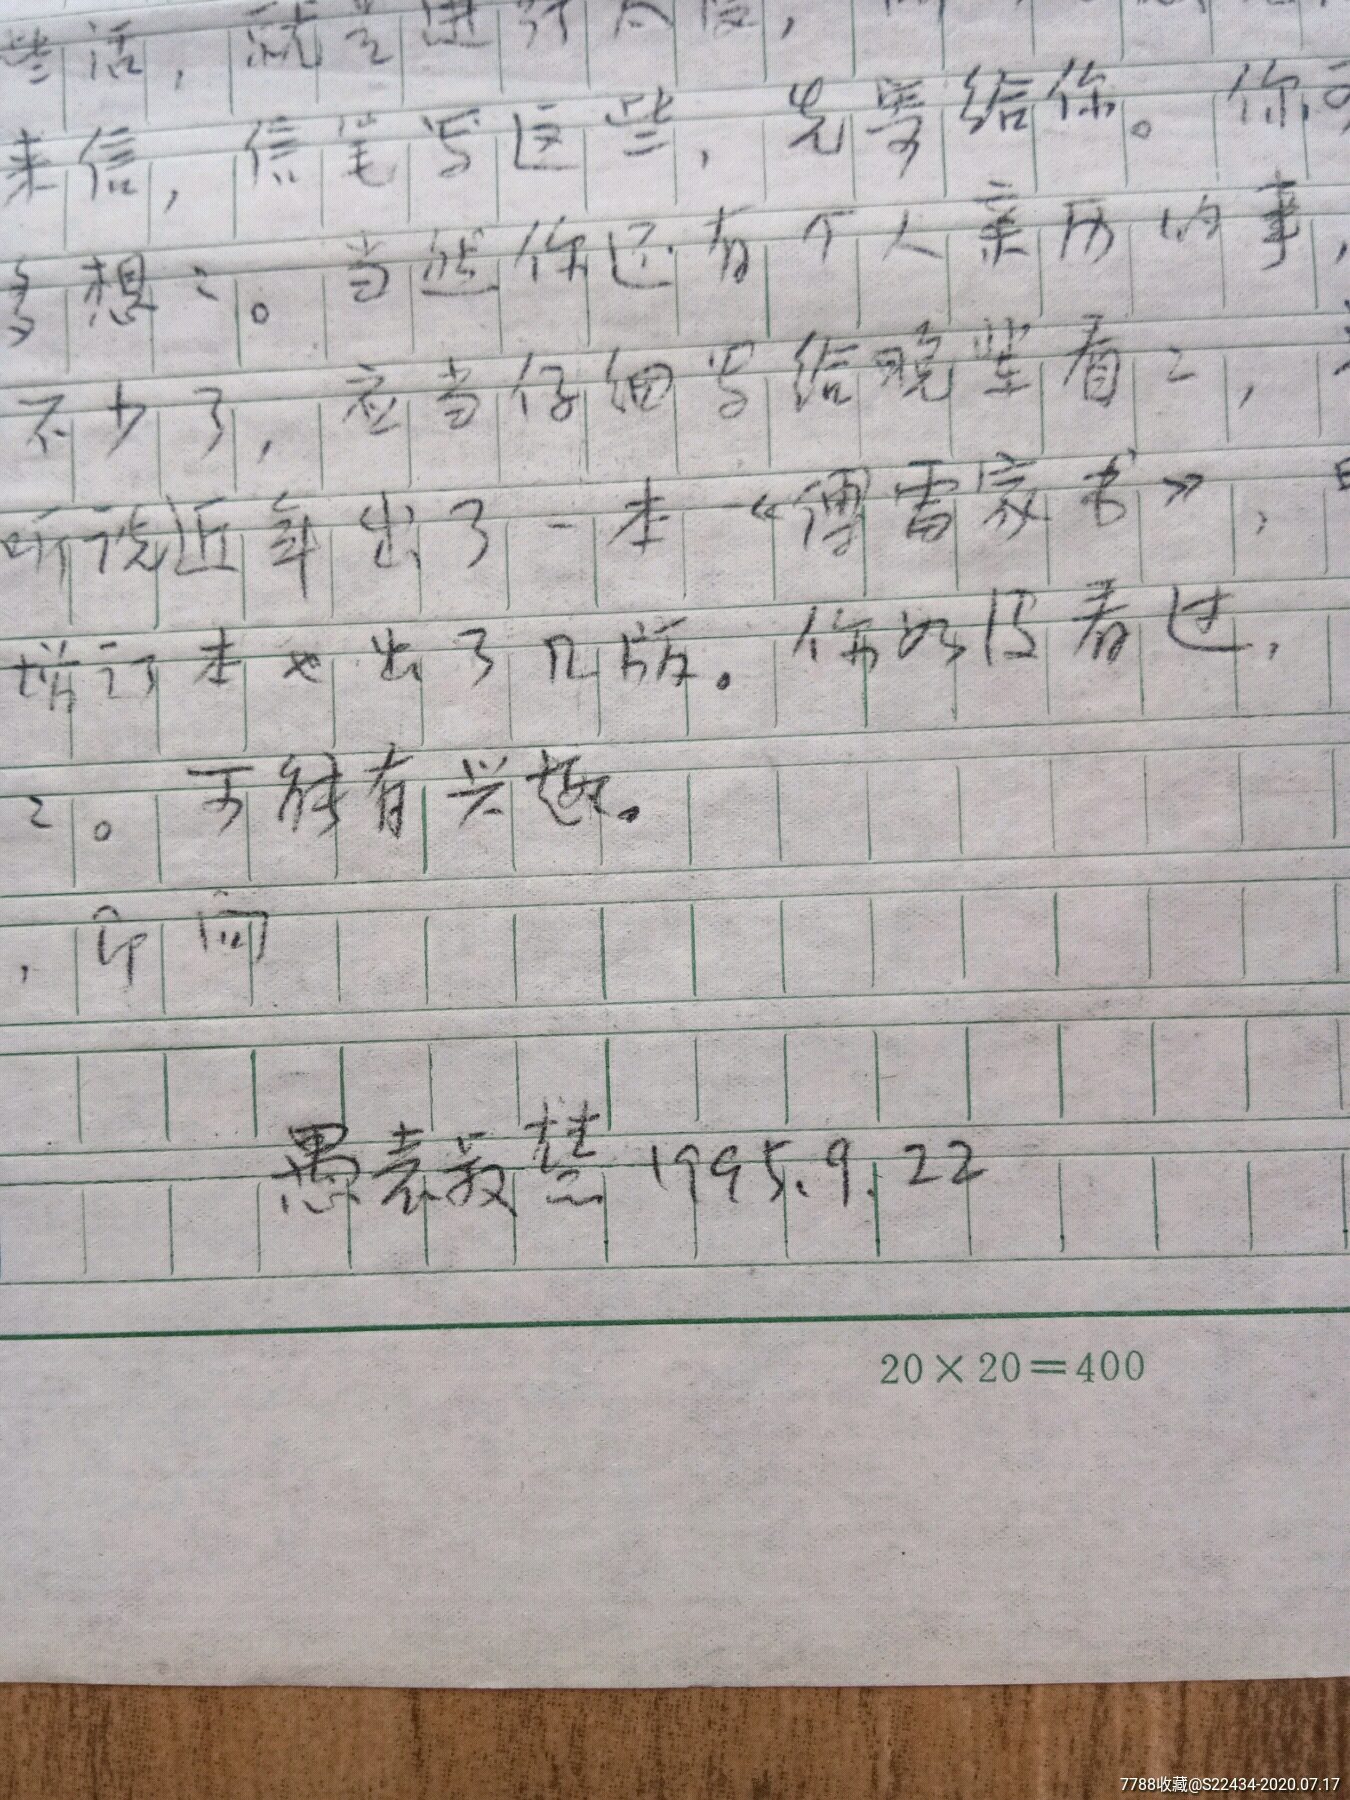 些话，就是进行
来信，信笔写这些，先寄给你。你
多想々。当然你还有个人亲历的事，
不少了，应当仔细写给晚辈看々，
听说近年出了一本《傅雷家书》，
增订本也出了几版。你如没看过，
々。可能有兴趣。
，即问
愚表叔慧 1995.9.22
20×20=400
7788收藏@S22434-2020.07.17